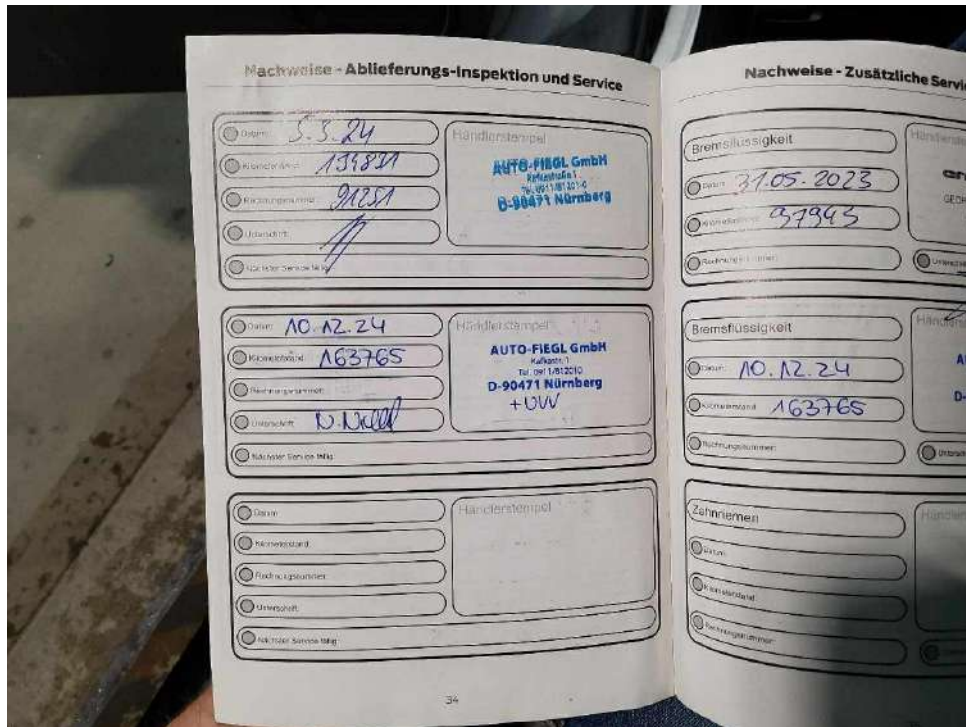 Nachweise - Ablieferungs-Inspektion und Service
Datum: 5.3.24
Kilometerstand:
Rechnungsnummer: 91251
Unterschrift:
Nächster Service fällig:
Händlerstempel
AUTO-FIEGL GmbH
D-90471 Nürnberg
Datum: 10.12.24
Kilometerstand: 163765
Rechnungsnummer:
Unterschrift:
Nächster Service fällig:
Händlerstempel
AUTO-FIEGL GmbH
Kafkastr. 1
Tel. 0911/812010
D-90471 Nürnberg
+ UVV
Datum:
Kilometerstand:
Rechnungsnummer:
Unterschrift:
Nächster Service fällig:
Händlerstempel
34
Nachweise - Zusätzliche
Bremsflüssigkeit
Datum: 31.05.2023
Kilometerstand: 97943
Rechnungsnummer:
Bremsflüssigkeit
Datum: 10.12.24
Kilometerstand: 163765
Rechnungsnummer:
Zahnriemen
Datum:
Kilometerstand:
Rechnungsnummer: